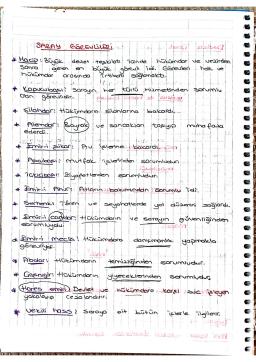 SARAY GÖREVLİLERİ
* Hacip: Büyük devlet teşkilatı içinde hükümdar ve vezirden
sonra gelen en büyük görevli idi. Görevleri halk ve
hükümdar arasında irtibatı sağlamaktı.
* Kapucubaşı: Sarayın her türlü hizmetinden sorumlu
olan görevlidir.
* Silahdar: Hükümdarın silahlarına bakardı.
* Alemdar: Bayrak ve sancakları taşıyıp muhafaza
ederdi.
* Emir-i şikar: Av işlerine bakardı.
* Aşçıbaşı: mutfak işlerinden sorumludur.
* İçkicibaşı:
* Emir-i Ahur: Atların bakımından sorumlu idi.
* Serhenk: Tören ve seyahatlerde yol düzeni sağlardı.
* Emir-i candar: Hükümdarın ve sarayın güvenliğinden
sorumluydu.
* Emir-i meclis: Hükümdara danışmanlık yapmakla
görevliydi.
* Hükümdarın temizliğinden sorumludur.
* Çaşnigir: Hükümdarın yiyeceklerinden sorumludur.
* Hares emiri: Devlet ve hükümdara karşı suç işleyen
* Vekil-i hass: saraya ait bütün işlerle ilgilenir.